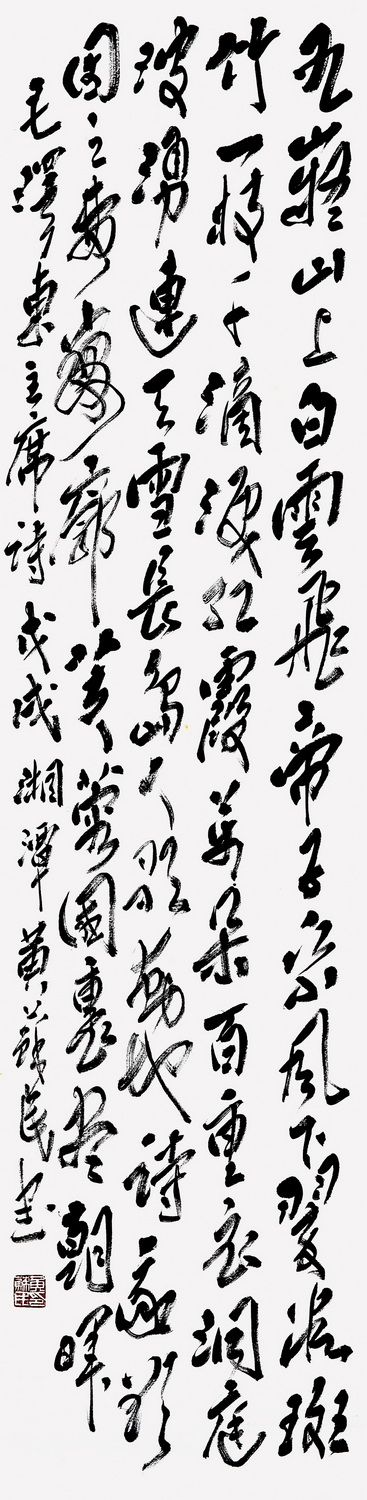 九嶷山上白雲飛帝子乘風下翠微斑
竹一枝千滴淚紅霞萬朵百重衣洞庭
波湧連天雪長島人歌動地詩我欲
因之夢寥廓芙蓉國裏盡朝暉
毛澤東主席詩戊戌湘潭黃民書